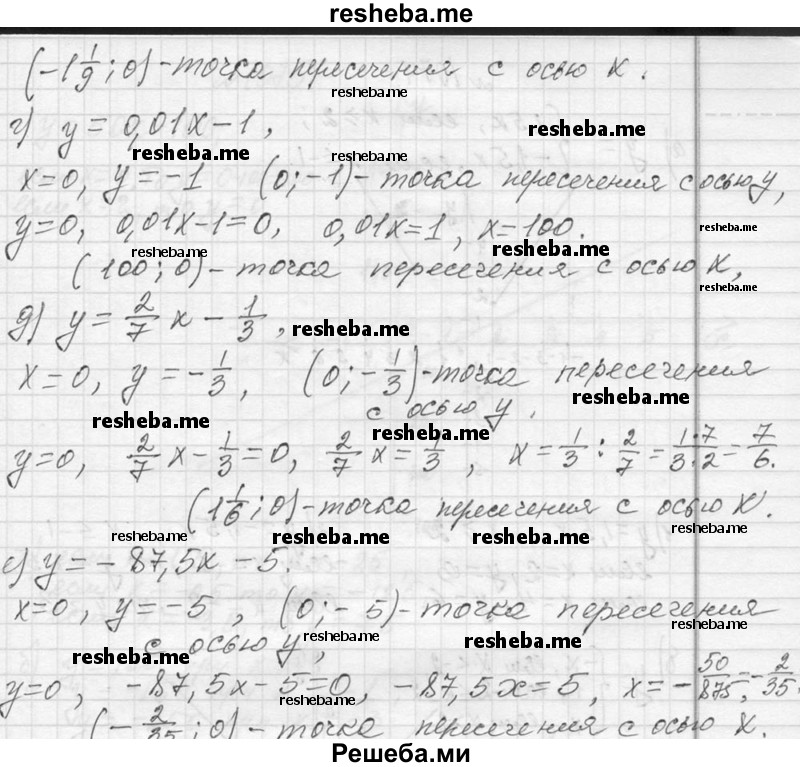 resheba.me
(-1 1/9; 0) - точка пересечения с осью x.
resheba.me
г) y = 0,01x - 1,
resheba.me
resheba.me resheba.me
x=0, y=-1 (0; -1) - точка пересечения с осью y,
y=0, 0,01x-1=0, 0,01x=1, x=100.
resheba.me
resheba.me resheba.me
(100; 0) - точка пересечения с осью x,
resheba.me
д) y = 2/7 x - 1/3,
resheba.me
x=0, y=-1/3, (0; -1/3) - точка пересечения
resheba.me
с осью y.
resheba.me resheba.me
y=0, 2/7 x - 1/3 = 0, 2/7 x = 1/3, x = 1/3 : 2/7 = 1·7/3·2 = 7/6.
(1 1/6; 0) - точка пересечения с осью x.
resheba.me resheba.me resheba.me resheba.me
е) y = -87,5x - 5.
x=0, y=-5, (0; -5) - точка пересечения
resheba.me
с осью y,
resheba.me resheba.me
resheba.me
y=0, -87,5x-5=0, -87,5x=5, x=-50/875=-2/35.
resheba.me resheba.me
(-2/35; 0) - точка пересечения с осью x.
Решеба.ми